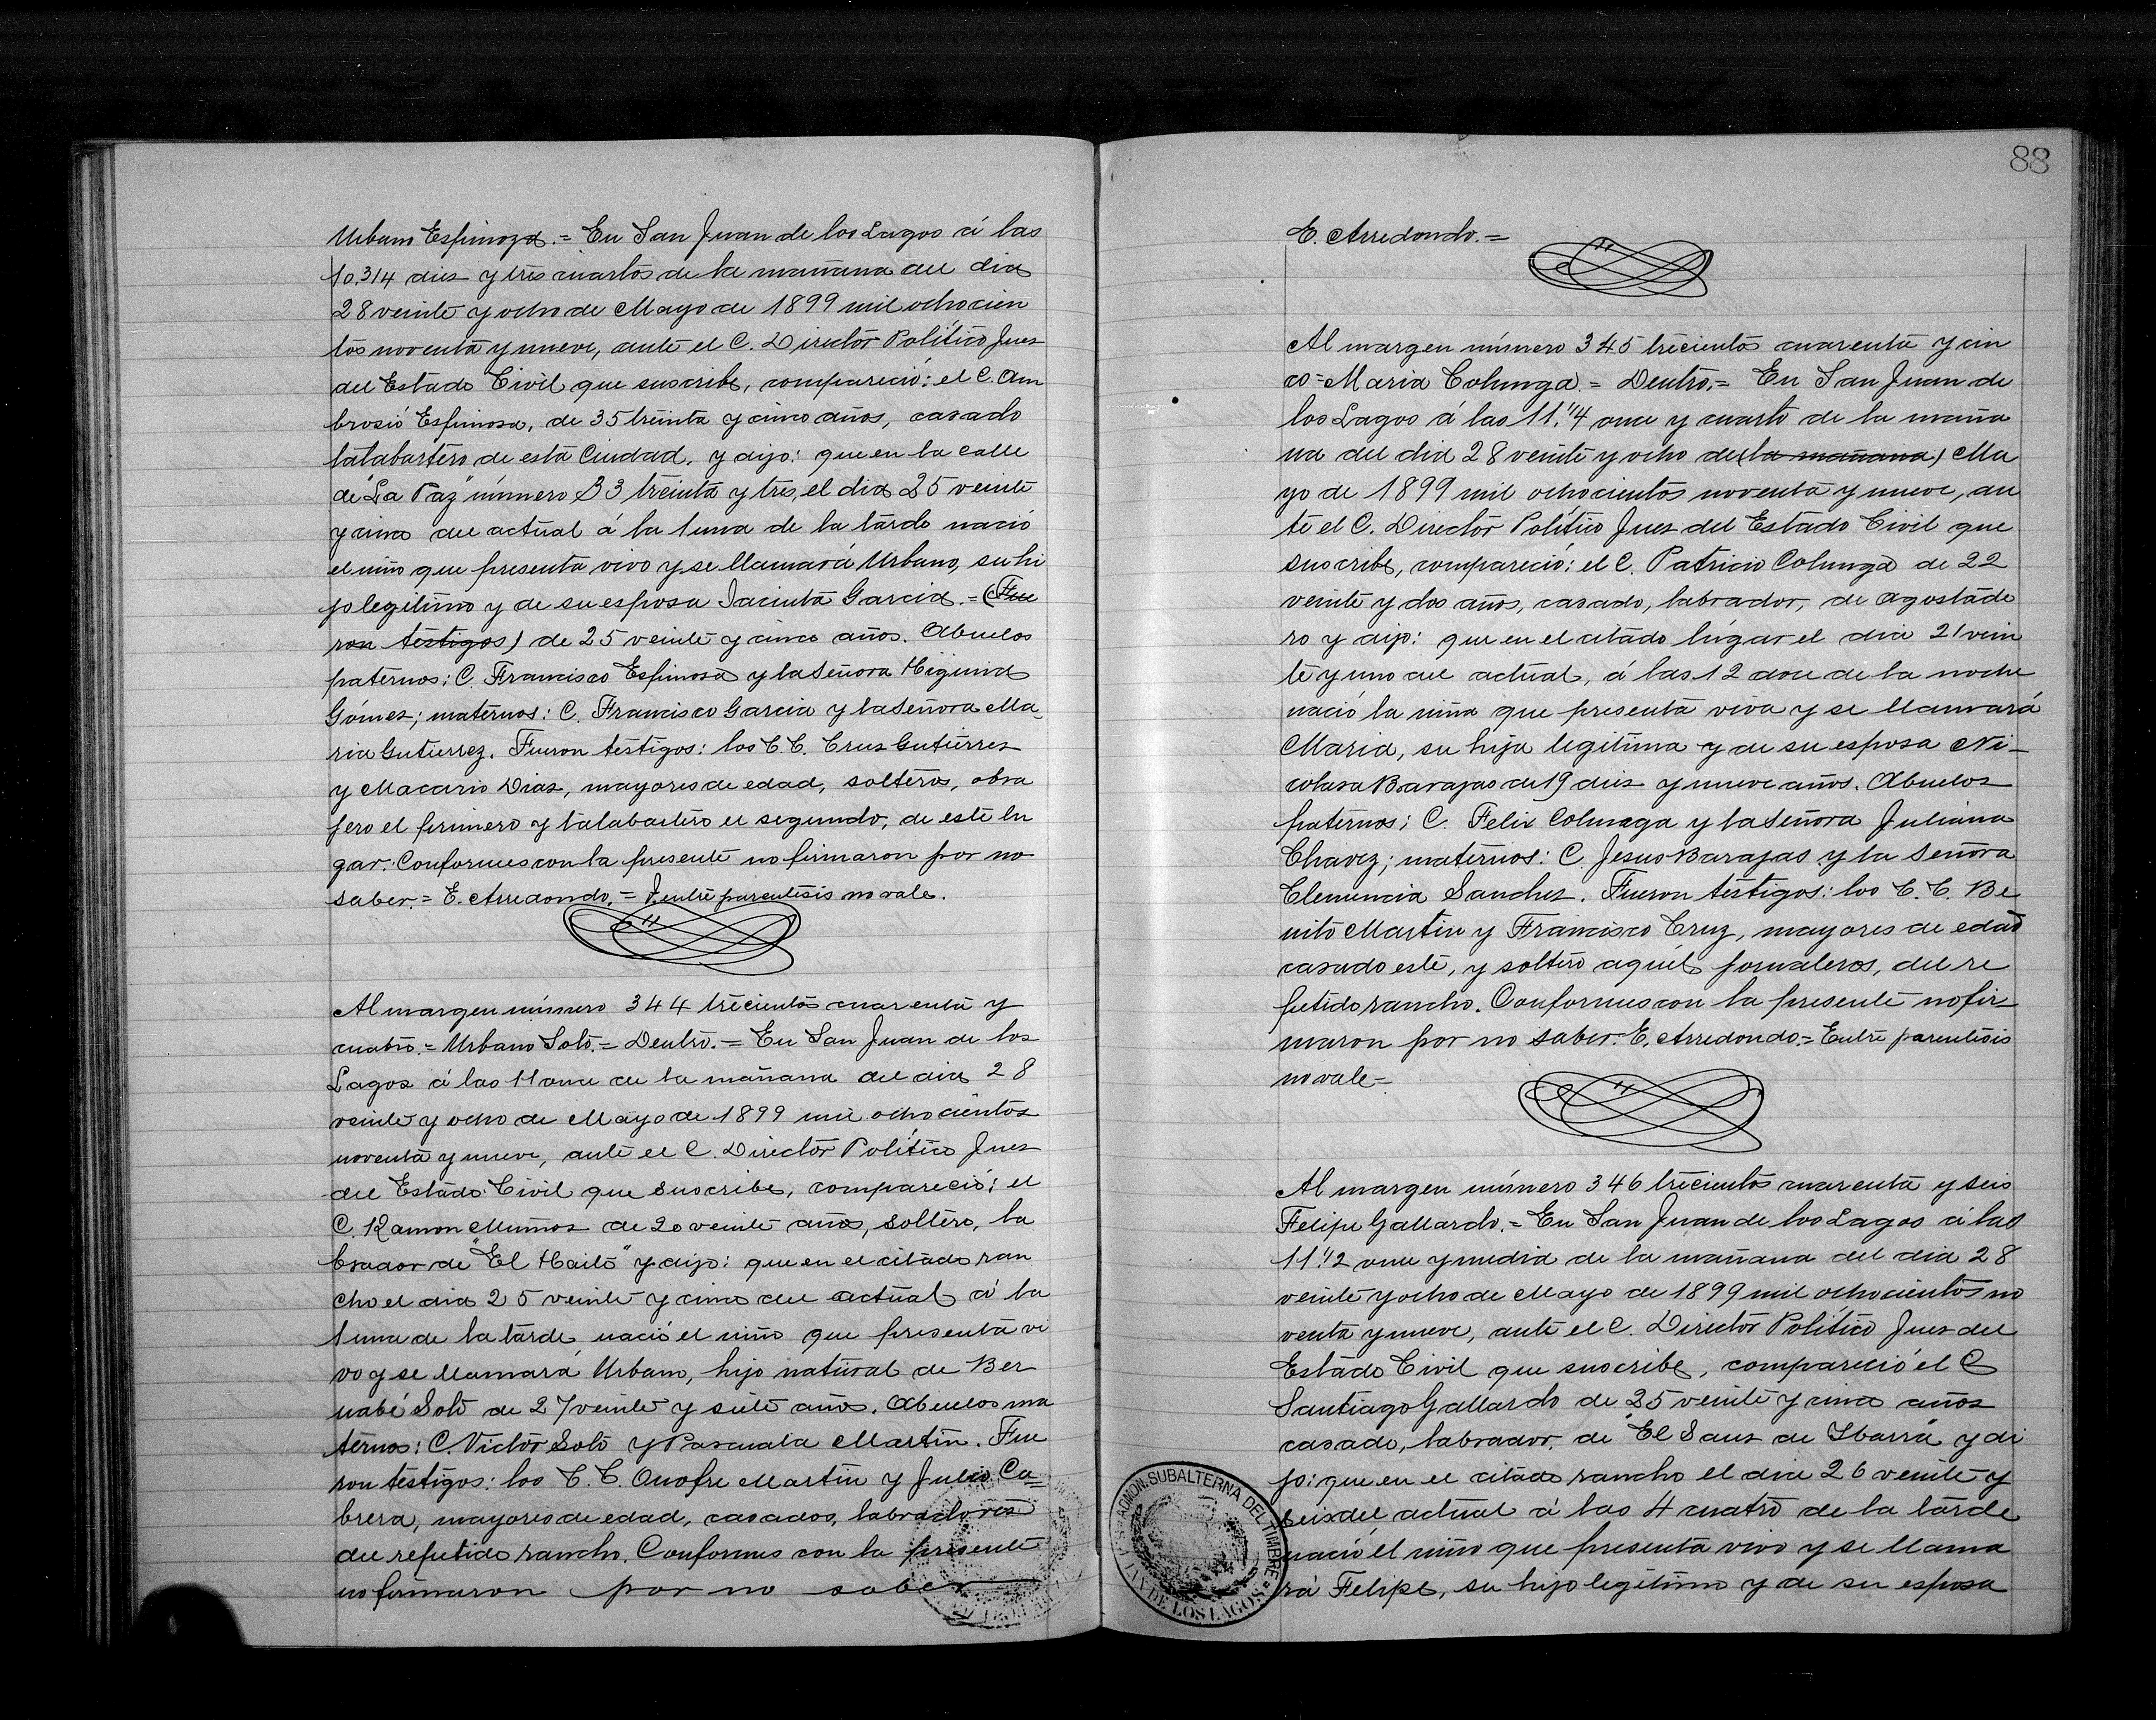 Urbano Espinoza.= En San Juan de los Lagos á las
10.3/4 diez y tres cuartos de la mañana del dia
28 veinte y ocho de Mayo de 1899 mil ochocien
tos noventa y nueve, ante el C. Director Político Juez
del Estado Civil que suscribe, compareció: el C. Am
brosio Espinosa, de 35 treinta y cinco años, casado
talabartero de esta Ciudad, y dijo: que en la calle
de "La Paz" número 33 treinta y tres, el dia 25 veinte
y cinco del actual á la 1 una de la tarde nació
el niño que presenta vivo y se llamará Urbano, su hi
jo legítimo y de su esposa Jacinta Garcia.=(Fue
ron testigos) de 25 veinte y cinco años. Abuelos
paternos: C. Francisco Espinosa y la Señora Higinia
Gómez; maternos: C. Francisco Garcia y la Señora Ma
ria Gutierrez. Fueron testigos: los C.C. Cruz Gutierrez
y Macario Diaz, mayores de edad, solteros, obra
jero el primero y talabartero el segundo, de este lu
gar. Conformes con la presente no firmaron por no
saber.= E. Arredondo.= entre parentesis no vale.
Al margen número 344 trecientos cuarenta y
cuatro.= Urbano Soto.= Dentro.= En San Juan de los
Lagos á las 11 once de la mañana del dia 28
veinte y ocho de Mayo de 1899 mil ochocientos
noventa y nueve, ante el C. Director Político Juez
del Estado Civil que suscribe, compareció: el
C. Ramon Muñoz de 20 veinte años, soltero, la
brador de "El Haito" y dijo: que en el citado ran
cho el dia 25 veinte y cinco del actual á la
1 una de la tarde nació el niño que presenta vi
vo y se llamará Urbano, hijo natural de Ber
nabé Soto de 27 veinte y siete años. Abuelos ma
ternos: C. Victor Soto y Pascuala Martin. Fue
ron testigos: los C.C. Onofre Martin y Julio Ca=
brera, mayores de edad, casados, labradores
del repetido rancho. Conformes con la presente
no firmaron por no saber
88
E. Arredondo.=
Al margen número 345 trecientos cuarenta y cin
co=Maria Colunga.= Dentro.= En San Juan de
los Lagos á las 11.1/4 once y cuarto de la maña
na del dia 28 veinte y ocho de (la mañana) Ma
yo de 1899 mil ochocientos noventa y nueve, an
te el C. Director Político Juez del Estado Civil que
suscribe, compareció: el C. Patricio Colunga de 22
veinte y dos años, casado, labrador, de Agostade
ro y dijo: que en el citado lúgar el dia 21 vein
te y uno del actual, á las 12 doce de la noche
nació la niña que presenta viva y se llamará
Maria, su hija legítima y de su esposa Ni=
colasa Barajas de 19 diez y nueve años. Abuelos
paternos: C. Felix Colunga y la Señora Juliana
Chavez; maternos: C. Jesus Barajas y la Señora
Clemencia Sanchez. Fueron testigos: los C.C. Be
nito Martin y Francisco Cruz, mayores de edad
casado este, y soltero aquél, jornaleros, del re
petido rancho. Conformes con la presente no fir
maron por no saber. E. Arredondo.= Entre parentesis
no vale=
Al margen número 346 trecientos cuarenta y seis
Felipe Gallardo.= En San Juan de los Lagos á las
11.1/2 once y media de la mañana del dia 28
veinte y ocho de Mayo de 1899 mil ochocientos no
venta y nueve, ante el C. Director Político Juez del
Estado Civil que suscribe, compareció el C
Santiago Gallardo de 25 veinte y cinco años
casado, labrador, de "El Sauz de Ibarra" y di
jo: que en el citado rancho el dia 26 veinte y
seis del actual á las 4 cuatro de la tarde
nació el niño que presenta vivo y se llama
rá Felipe, su hijo legítimo y de su esposa
ADMON. SUBALTERNA DEL TIMBRE
JUAN DE LOS LAGOS